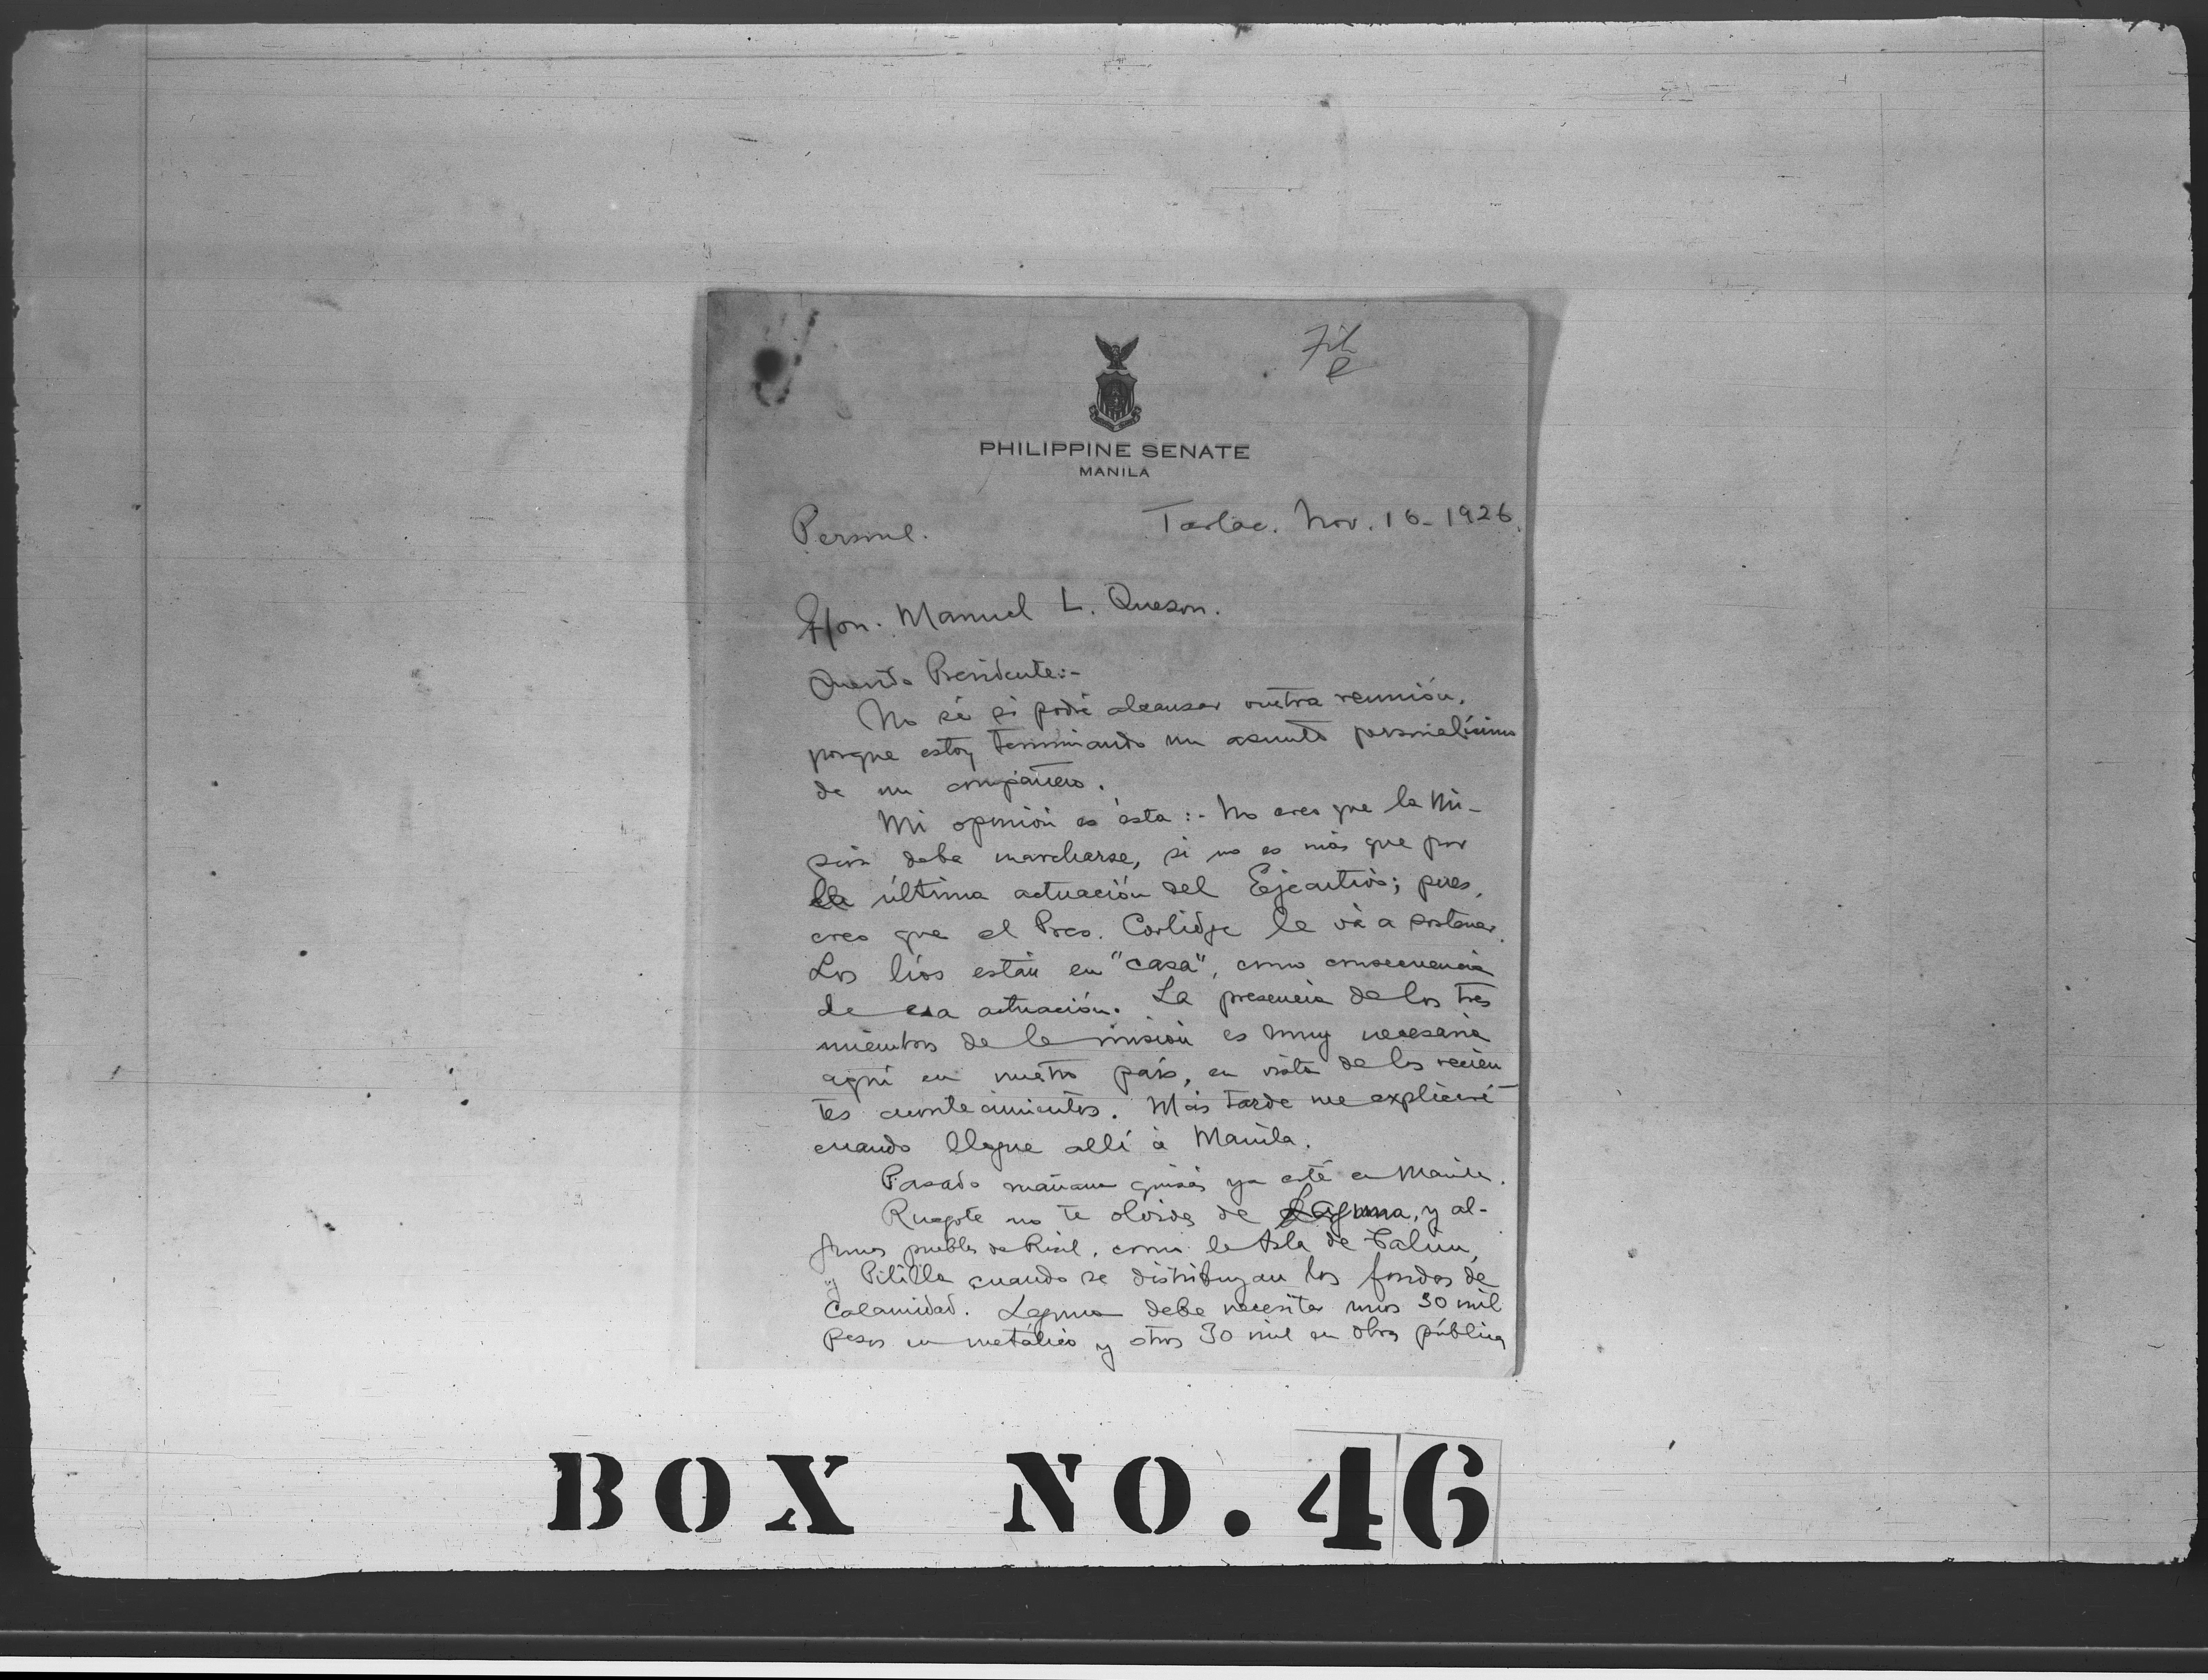 File
PHILIPPINE SENATE
MANILA
Personal.
Tarlac. Nov. 16-1926.
Hon. Manuel L. Quezon.
Querido Presidente:-
No sé si podré alcanzar vuestra reunión,
porque estoy terminando un asunto personalísimo
de un compañero.
Mi opinión es ésta:- No creo que la Mi-
sión deba marcharse, si no es más que por
la última actuación del Ejecutivo; pues,
creo que el Pres. Coolidge le vá a sostener.
Los líos están en "casa", como consecuencia
de esa actuación. La presencia de los tres
miembros de la misión es muy necesaria
aquí en nuestro país, en vista de los recien
tes acontecimientos. Más tarde me explicaré
cuando llegue allí á Manila.
Pasado mañana quizás ya esté en Manila.
Ruegote no te olvides de Laguna, y al-
gunos pueblos de Rizal, como la Isla de Talim,
y Pililla cuando se distribuyan los fondos de
Calamidad. Laguna debe necesitar unos 30 mil
pesos en metálico y otros 30 mil en obra pública
BOX NO. 46